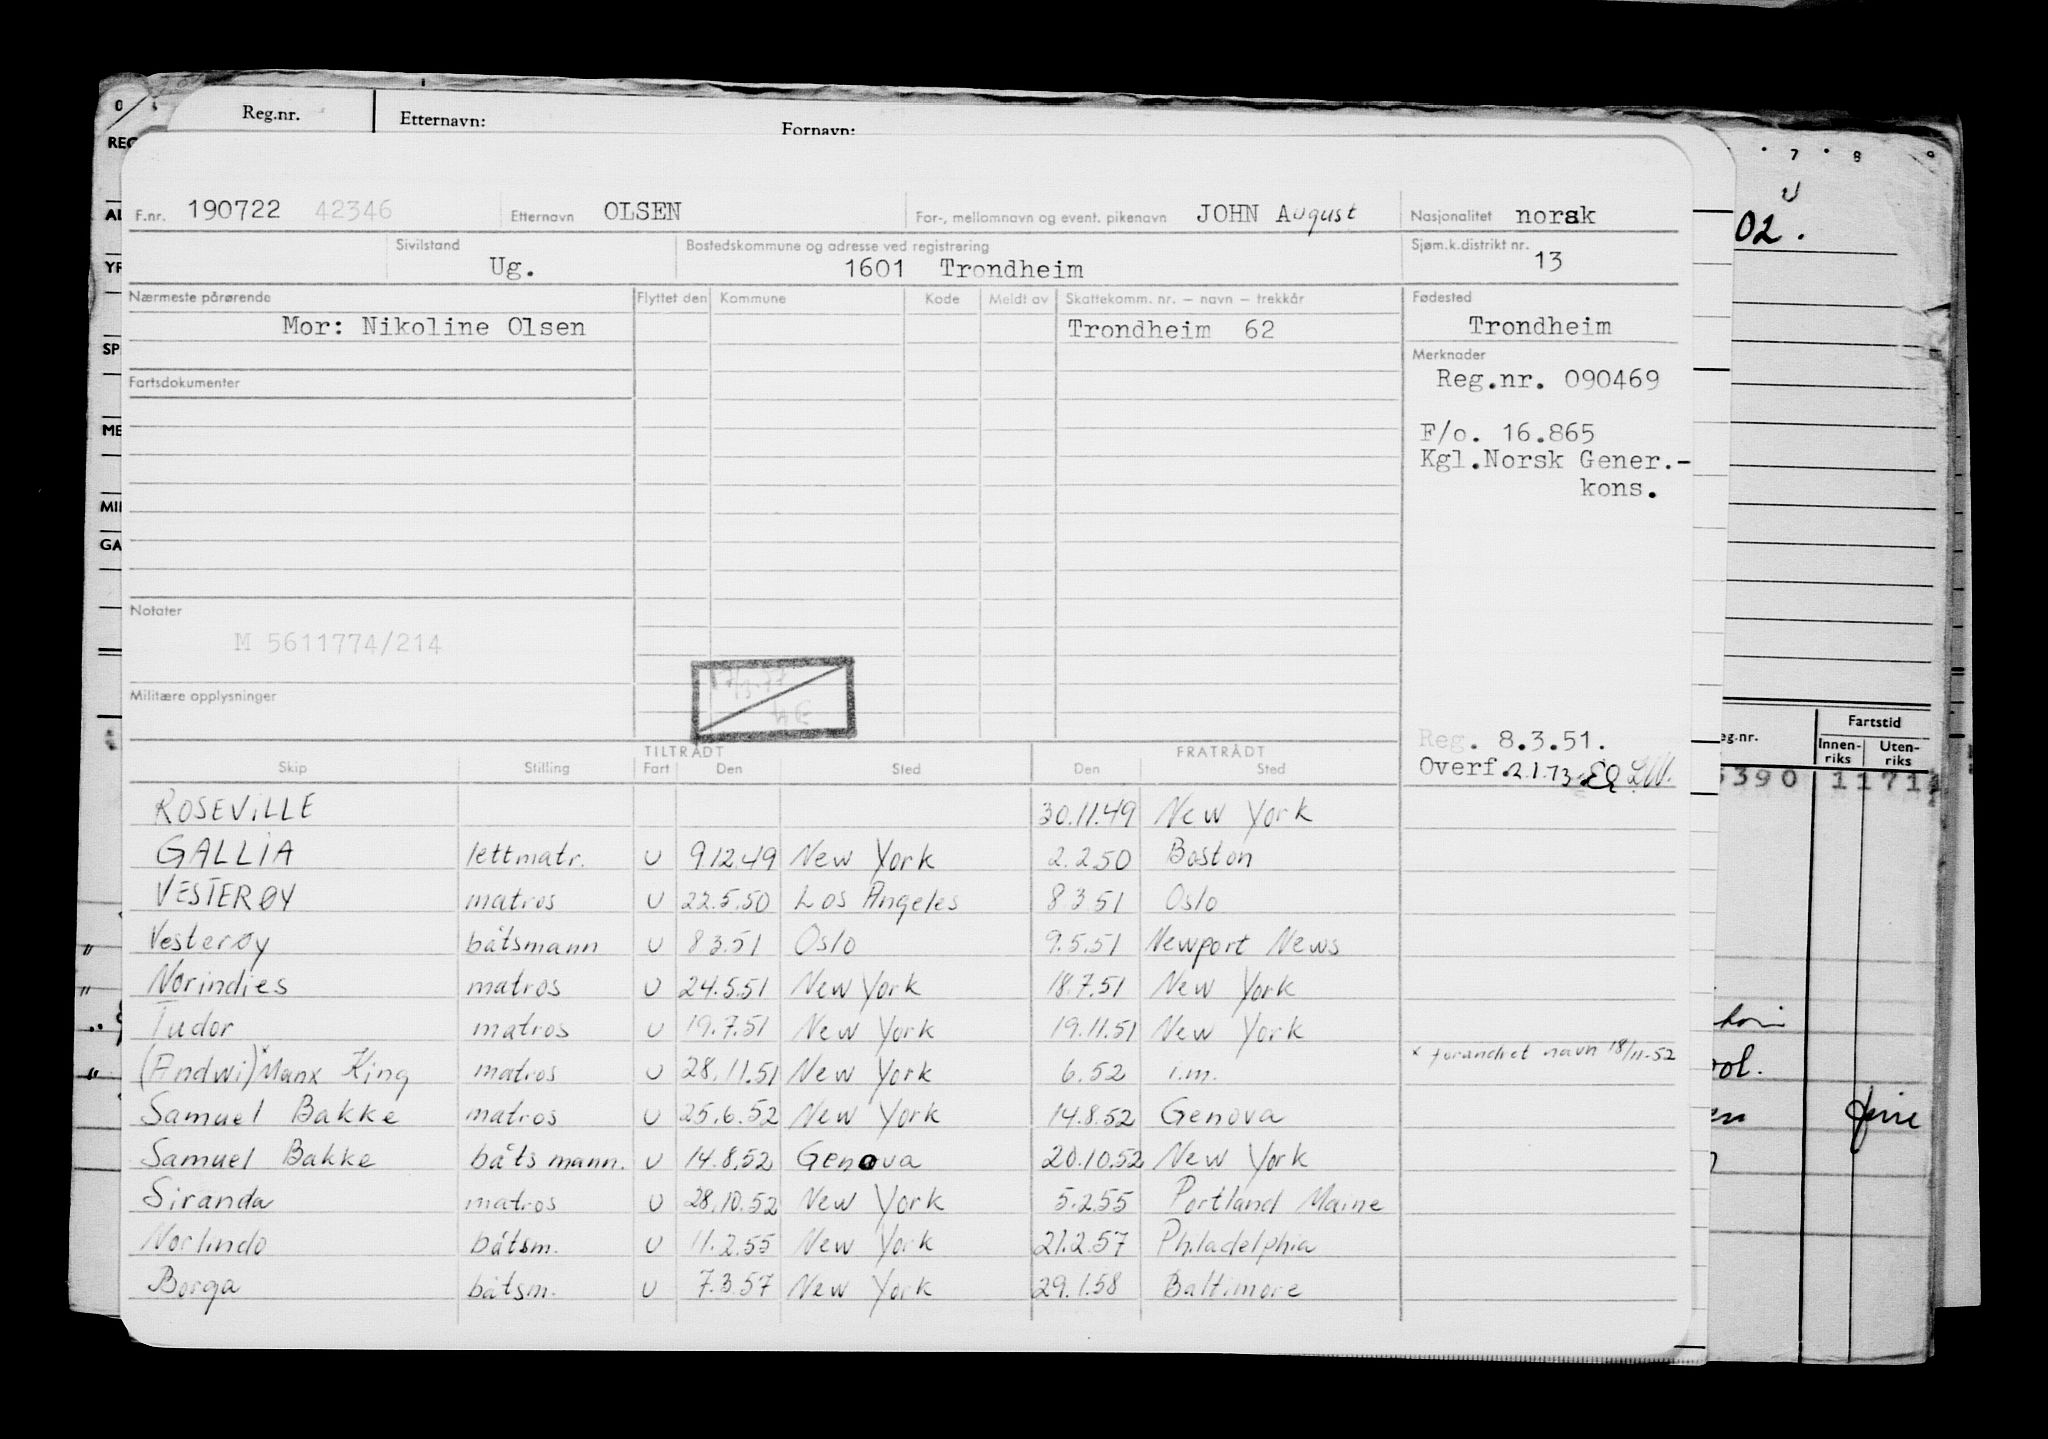 Reg.nr. Etternavn: Fornavn:
F.nr. 190722 42346 Etternavn OLSEN For-, mellomnavn og event. pikenavn JOHN August Nasjonalitet norsk
Sivilstand Ug. Bostedskommune og adresse ved registrering 1601 Trondheim Sjøm.k.distrikt nr. 13
Nærmeste pårørende Flyttet den Kommune Kode Meldt av Skattekomm. nr. – navn – trekkår Fødested
Mor: Nikoline Olsen Trondheim 62 Trondheim
Merknader
Fartsdokumenter Reg.nr. 090469
F/o. 16.865
Kgl.Norsk Gener.-
kons.
Notater
M 5611774/214
Militære opplysninger
Reg. 8.3.51.
TILTRÅDT FRATRÅDT
Skip Stilling Fart Den Sted Den Sted Overf. 2.1.73
ROSEVILLE 30.11.49 New York
GALLIA lettmatr. U 9.12.49 New York 2.2.50 Boston
VESTERØY matros U 22.5.50 Los Angeles 8.3.51 Oslo
Vesterøy båtsmann U 8.3.51 Oslo 9.5.51 Newport News
Norindies matros U 24.5.51 New York 18.7.51 New York
Tudor matros U 19.7.51 New York 19.11.51 New York
(Andwi)x Manx King matros U 28.11.51 New York 6.52 i.m. x forandret navn 18/11-52
Samuel Bakke matros U 25.6.52 New York 14.8.52 Genova
Samuel Bakke båtsmann. U 14.8.52 Genova 20.10.52 New York
Siranda matros U 28.10.52 New York 5.2.55 Portland Maine
Norlindo båtsm. U 11.2.55 New York 21.2.57 Philadelphia
Borga båtsm. U 7.3.57 New York 29.1.58 Baltimore
7 8 9
02.
Fartstid
Innen-riks Uten-riks
5390 1171